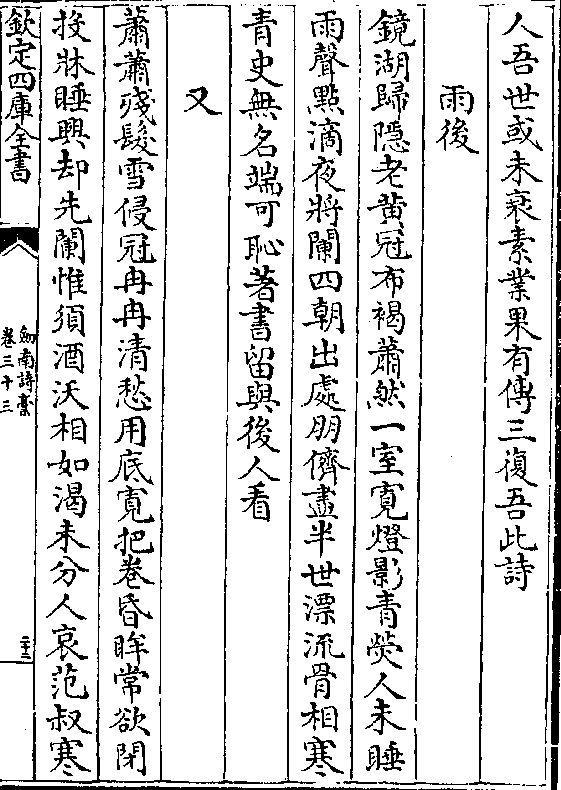 人吾世或未衰素業果有傳三復吾此詩
雨後
鏡湖歸隱老黄冠布褐蕭然一室寛燈影青熒人未睡
雨聲點滴夜將闌四朝出處朋儕盡半世漂流骨相寒
青史無名端可恥著書留與後人看
又
蕭蕭殘髮雪侵冠冉冉清愁用底寛把卷昏眸常欲閉
投牀睡興却先闌惟須酒沃相如渴未分人哀范叔寒
欽定四庫全書
劒南詩藁
卷三十三
二十二